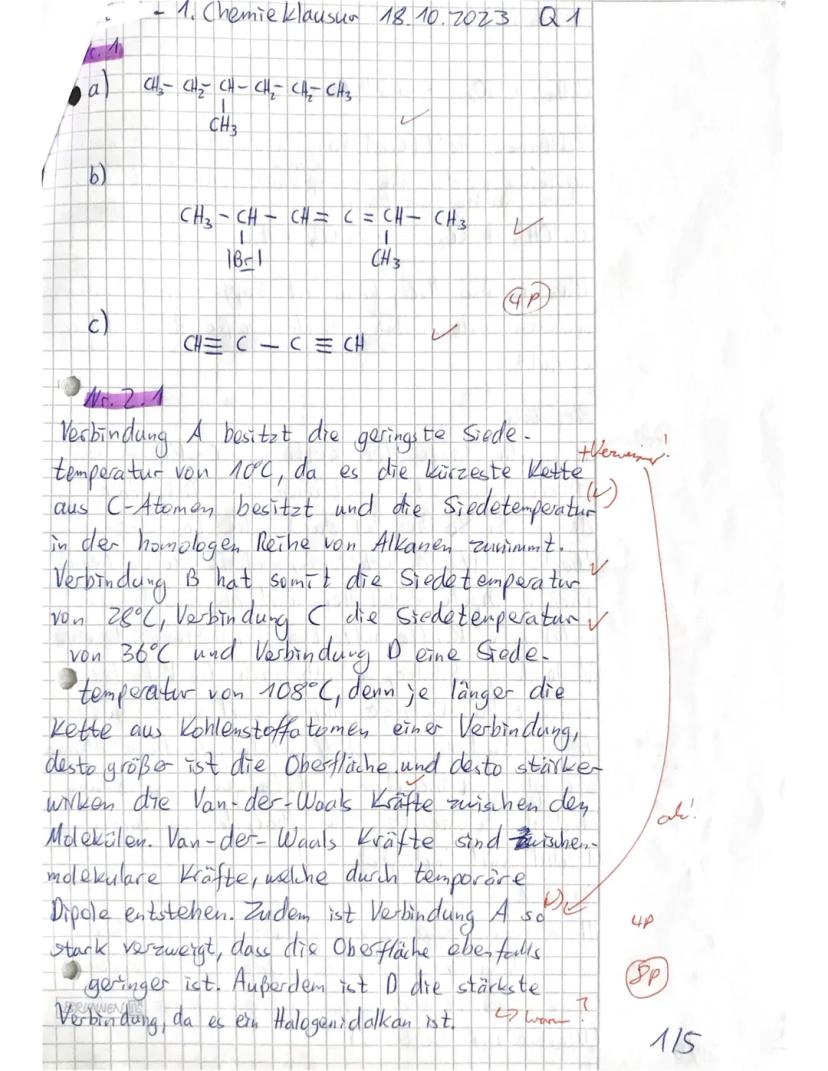 - 1. Chemieklausur 18.10.2023 Q1
Nr. 1
a) CH3- CH2- CH- CH2- CH2- CH3
CH3
b)
CH3 - CH - CH = C = CH - CH3
|Br| CH3
4P
c)
CH ≡ C - C ≡ CH
Nr. 2.1
Verbindung A besitzt die geringste Siede-
temperatur von 10°C, da es die kürzeste Kette
aus C-Atomen besitzt und die Siedetemperatur
in der homologen Reihe von Alkanen zunimmt.
Verbindung B hat somit die Siedetemperatur
von 28°C, Verbindung C die Siedetemperatur
von 36°C und Verbindung D eine Siede-
temperatur von 108°C, denn je länger die
Kette aus Kohlenstoffatomen einer Verbindung,
desto größer ist die Oberfläche und desto stärker
wirken die Van-der-Waals Kräfte zwischen den
Molekülen. Van-der-Waals Kräfte sind zwischen-
molekulare Kräfte, welche durch temporäre
Dipole entstehen. Zudem ist Verbindung A so
4P
stark verzweigt, dass die Oberfläche ebenfalls
geringer ist. Außerdem ist D die stärkste
8P
BRUNNEN
Verbindung, da es ein Halogenidalkan ist.
1/5